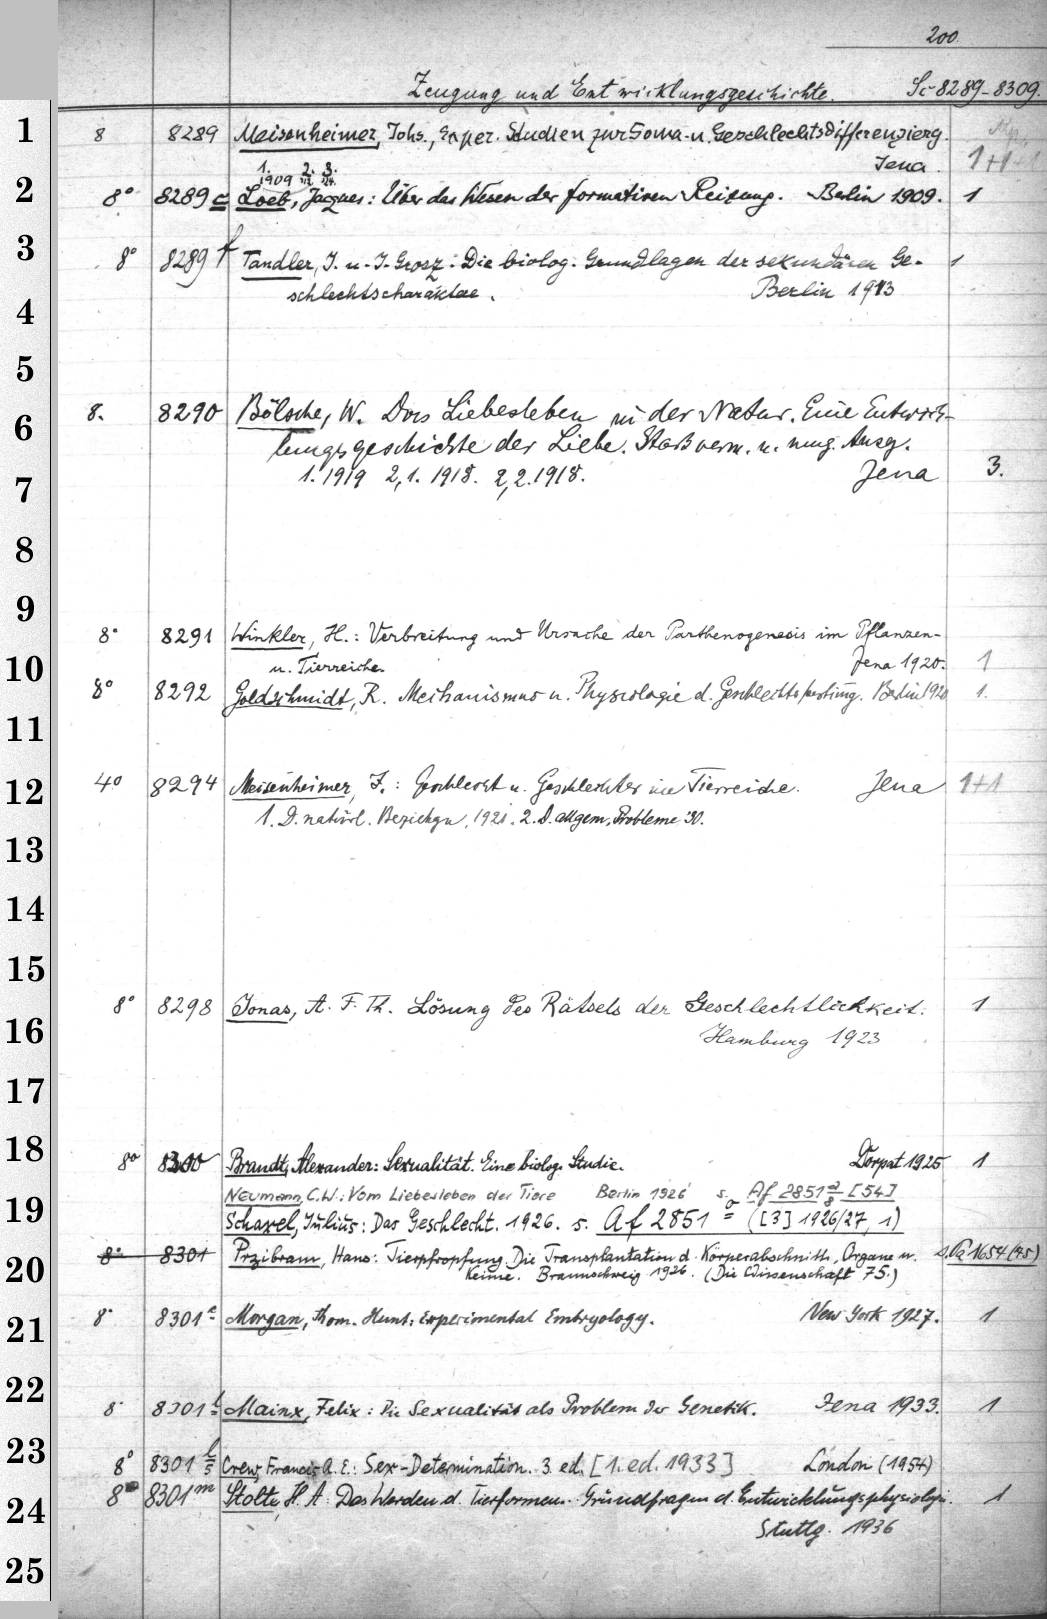 200.
Zeugung und Entwicklungsgeschichte. Sc 8289-8309.
1 8 8289 Meisenheimer, Johs., Exper. Studien zur Soma- u. Geschlechtsdifferenzierg.
Jena. 1+1
1. 1909 2. 12. 3. 24.
2 8° 8289 c Loeb, Jacques: Über das Wesen der formativen Reizung. Berlin 1909. 1
3 8° 8289 f Tandler, J. u. J. Grosz: Die biolog. Grundlagen der sekundären Ge- 1
schlechtscharaktere. Berlin 1913
4
5
6 8. 8290 Bölsche, W. Das Liebesleben in der Natur. Eine Entwick-
lungsgeschichte der Liebe. Stark verm. u. umg. Ausg.
7 1. 1919 2,1. 1918. 2,2. 1918. Jena 3.
8
9
8° 8291 Winkler, H.: Verbreitung und Ursache der Parthenogenesis im Pflanzen-
10 u. Tierreiche. Jena 1920. 1
8° 8292 Goldschmidt, R. Mechanismus u. Physiologie d. Geschlechtsbestimg. Berlin 1920 1.
11
12 4° 8294 Meisenheimer, J.: Geschlecht u. Geschlechter im Tierreiche. Jena 1+1
1. D. natürl. Beziehgn, 1921. 2. D. allgem. Probleme '30.
13
14
15
8° 8298 Jonas, A. F. Th. Lösung des Rätsels der Geschlechtlichkeit. 1
16 Hamburg 1923
17
18 8° 8300 Brandt, Alexander: Sexualität. Eine biolog. Studie. Dorpat 1925 1
Neumann, C.W.: Vom Liebesleben der Tiere Berlin 1926 s. Af 2851 a/8 [54]
19 Schaxel, Julius: Das Geschlecht. 1926. s. Af 2851 o ([3] 1926/27, 1)
20 8° 8301 Przibram, Hans: Tierpfropfung. Die Transplantation d. Körperabschnitte, Organe u. s. Pa 1654 (75)
Keime. Braunschweig 1926. (Die Wissenschaft 75.)
21 8° 8301 a Morgan, Thom. Hunt: Experimental Embryology. New York 1927. 1
22
8° 8301 b Mainx, Felix: Die Sexualität als Problem der Genetik. Jena 1933. 1
23
8° 8301 l/5 Crew, Francis A. E.: Sex-Determination. 3. ed. [1. ed. 1933] London (1954)
24 8° 8301 m Stolte, H. A: Das Werden d. Tierformen. Grundfragen d. Entwicklungsphysiologie. 1
Stuttg. 1936
25